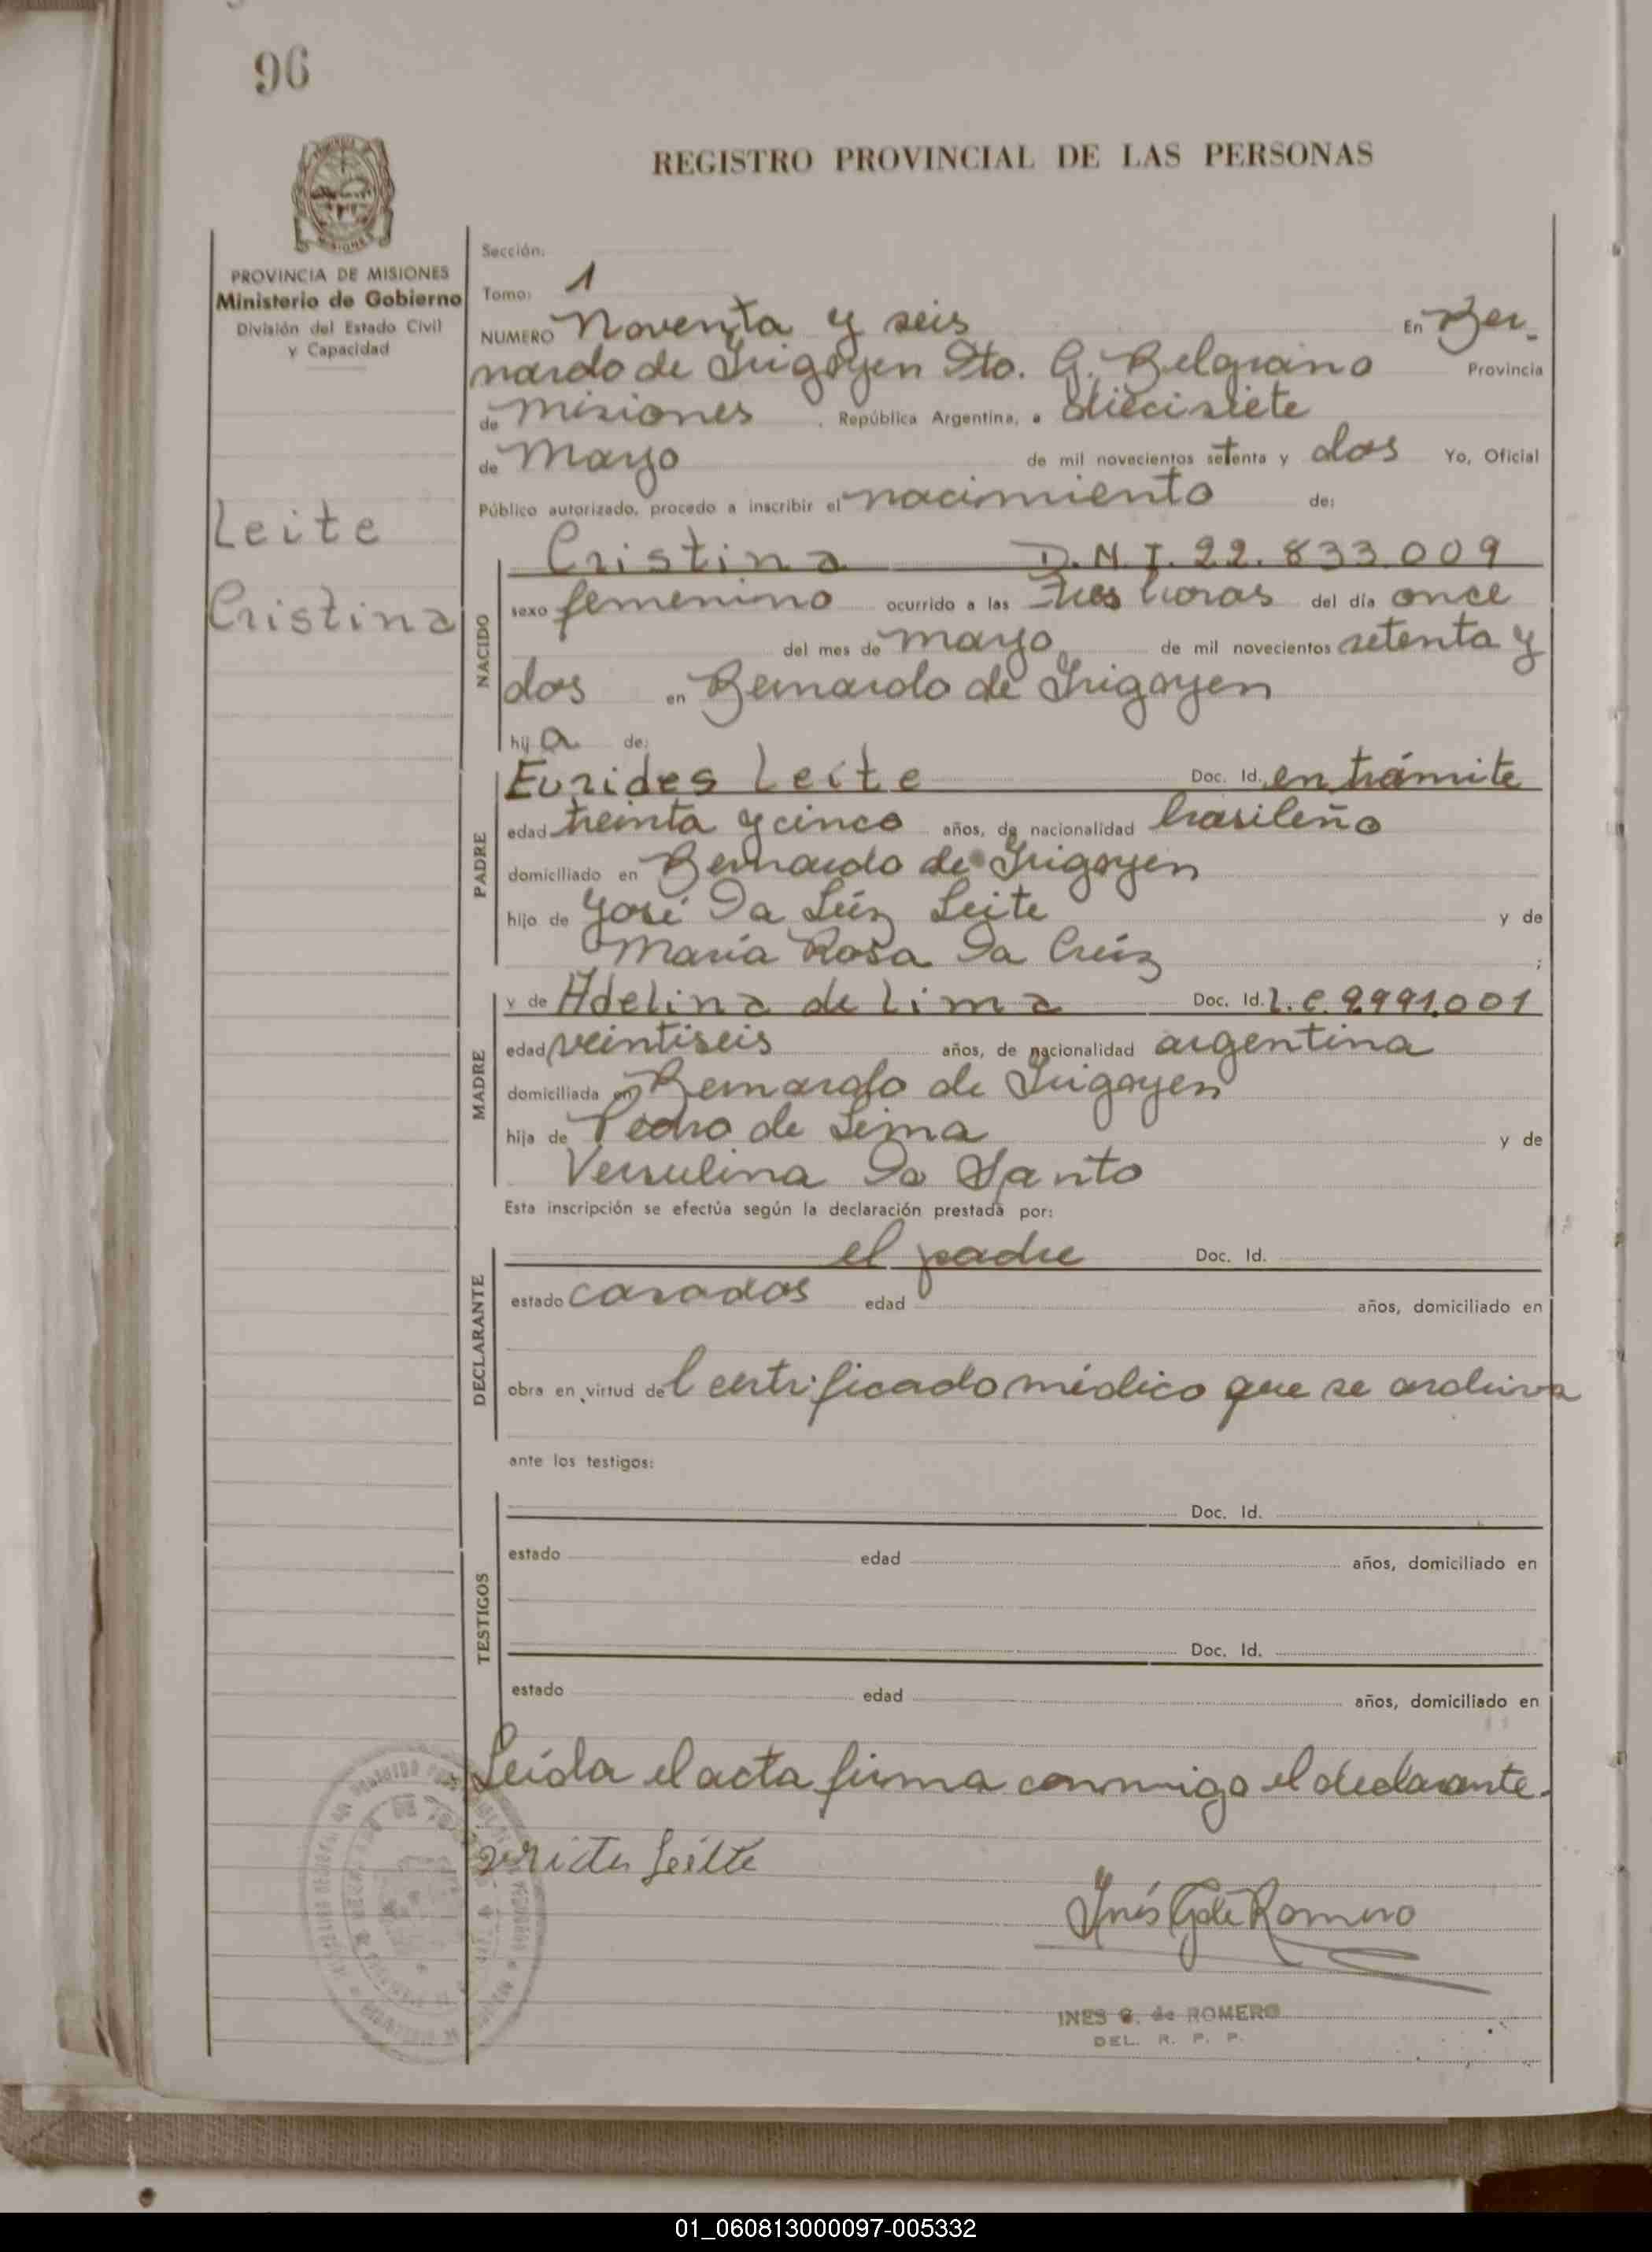 96
REGISTRO PROVINCIAL DE LAS PERSONAS
PROVINCIA DE MISIONES
Ministerio de Gobierno
División del Estado Civil
y Capacidad
Leite
Cristina
Sección:
Tomo: 1
NUMERO Noventa y seis En Ber-
nardo de Irigoyen Dto. G. Belgrano Provincia
de Misiones, República Argentina, a diecisiete
de Mayo de mil novecientos setenta y dos Yo, Oficial
Público autorizado, procedo a inscribir el nacimiento de:
NACIDO
Cristina D.N.I. 22.833.009
sexo femenino ocurrido a las tres horas del día once
del mes de mayo de mil novecientos setenta y
dos en Bernardo de Irigoyen
hija de:
PADRE
Eurides Leite Doc. Id. en trámite
edad treinta y cinco años, de nacionalidad brasileño
domiciliado en Bernardo de Irigoyen
hijo de José Da Lúz Leite y de
María Rosa Da Crúz ;
MADRE
y de Adelina de Lima Doc. Id. L.C. 9991.001
edad veintiseis años, de nacionalidad argentina
domiciliada en Bernardo de Irigoyen
hija de Pedro de Lima y de
Versulina Do Santo
Esta inscripción se efectúa según la declaración prestada por:
DECLARANTE
el padre Doc. Id.
estado casados edad años, domiciliado en
obra en virtud del certificado médico que se archiva
ante los testigos:
TESTIGOS
Doc. Id.
estado edad años, domiciliado en
Doc. Id.
estado edad años, domiciliado en
Leída el acta firma conmigo el declarante.
Leitte
Inés G de Romero
INES G. de ROMERO
DEL. R. P. P.
01_060813000097-005332